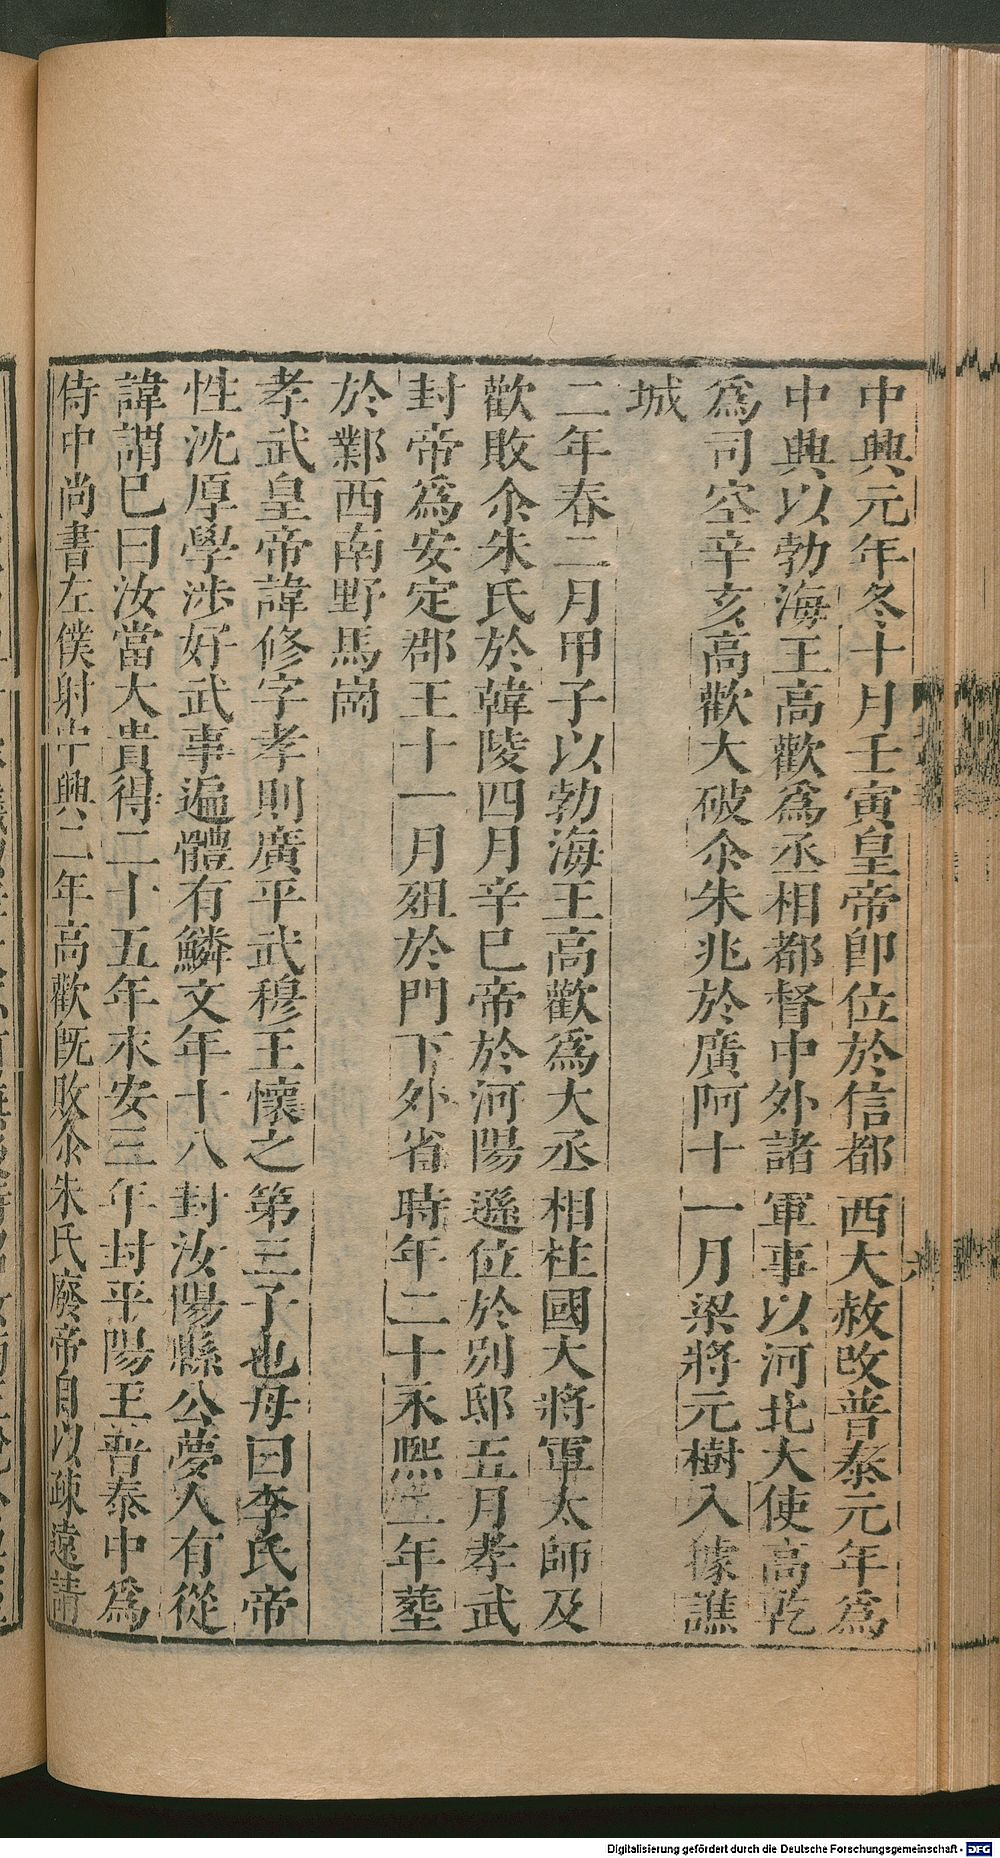 中興元年冬十月壬寅皇帝卽位於信都西大赦改普泰元年爲
中興以勃海王高歡爲丞相都督中外諸軍事以河北大使高乾
爲司空辛亥高歡大破尒朱兆於廣阿十一月梁將元樹入據譙
城
二年春二月甲子以勃海王高歡爲大丞相柱國大將軍太師及
歡敗尒朱氏於韓陵四月辛巳帝於河陽遜位於別邸五月孝武
封帝爲安定郡王十一月殂於門下外省時年二十永熙二年葬
於鄴西南野馬崗
孝武皇帝諱修字孝則廣平武穆王懷之第三子也母曰李氏帝
性沈厚學涉好武事遍體有鱗文年十八封汝陽縣公夢人有從
諱謂已曰汝當大貴得二十五年永安三年封平陽王普泰中爲
侍中尚書左僕射中興二年高歡旣敗尒朱氏廢帝自以疎遠請
六
Digitalisierung gefördert durch die Deutsche Forschungsgemeinschaft - DFG